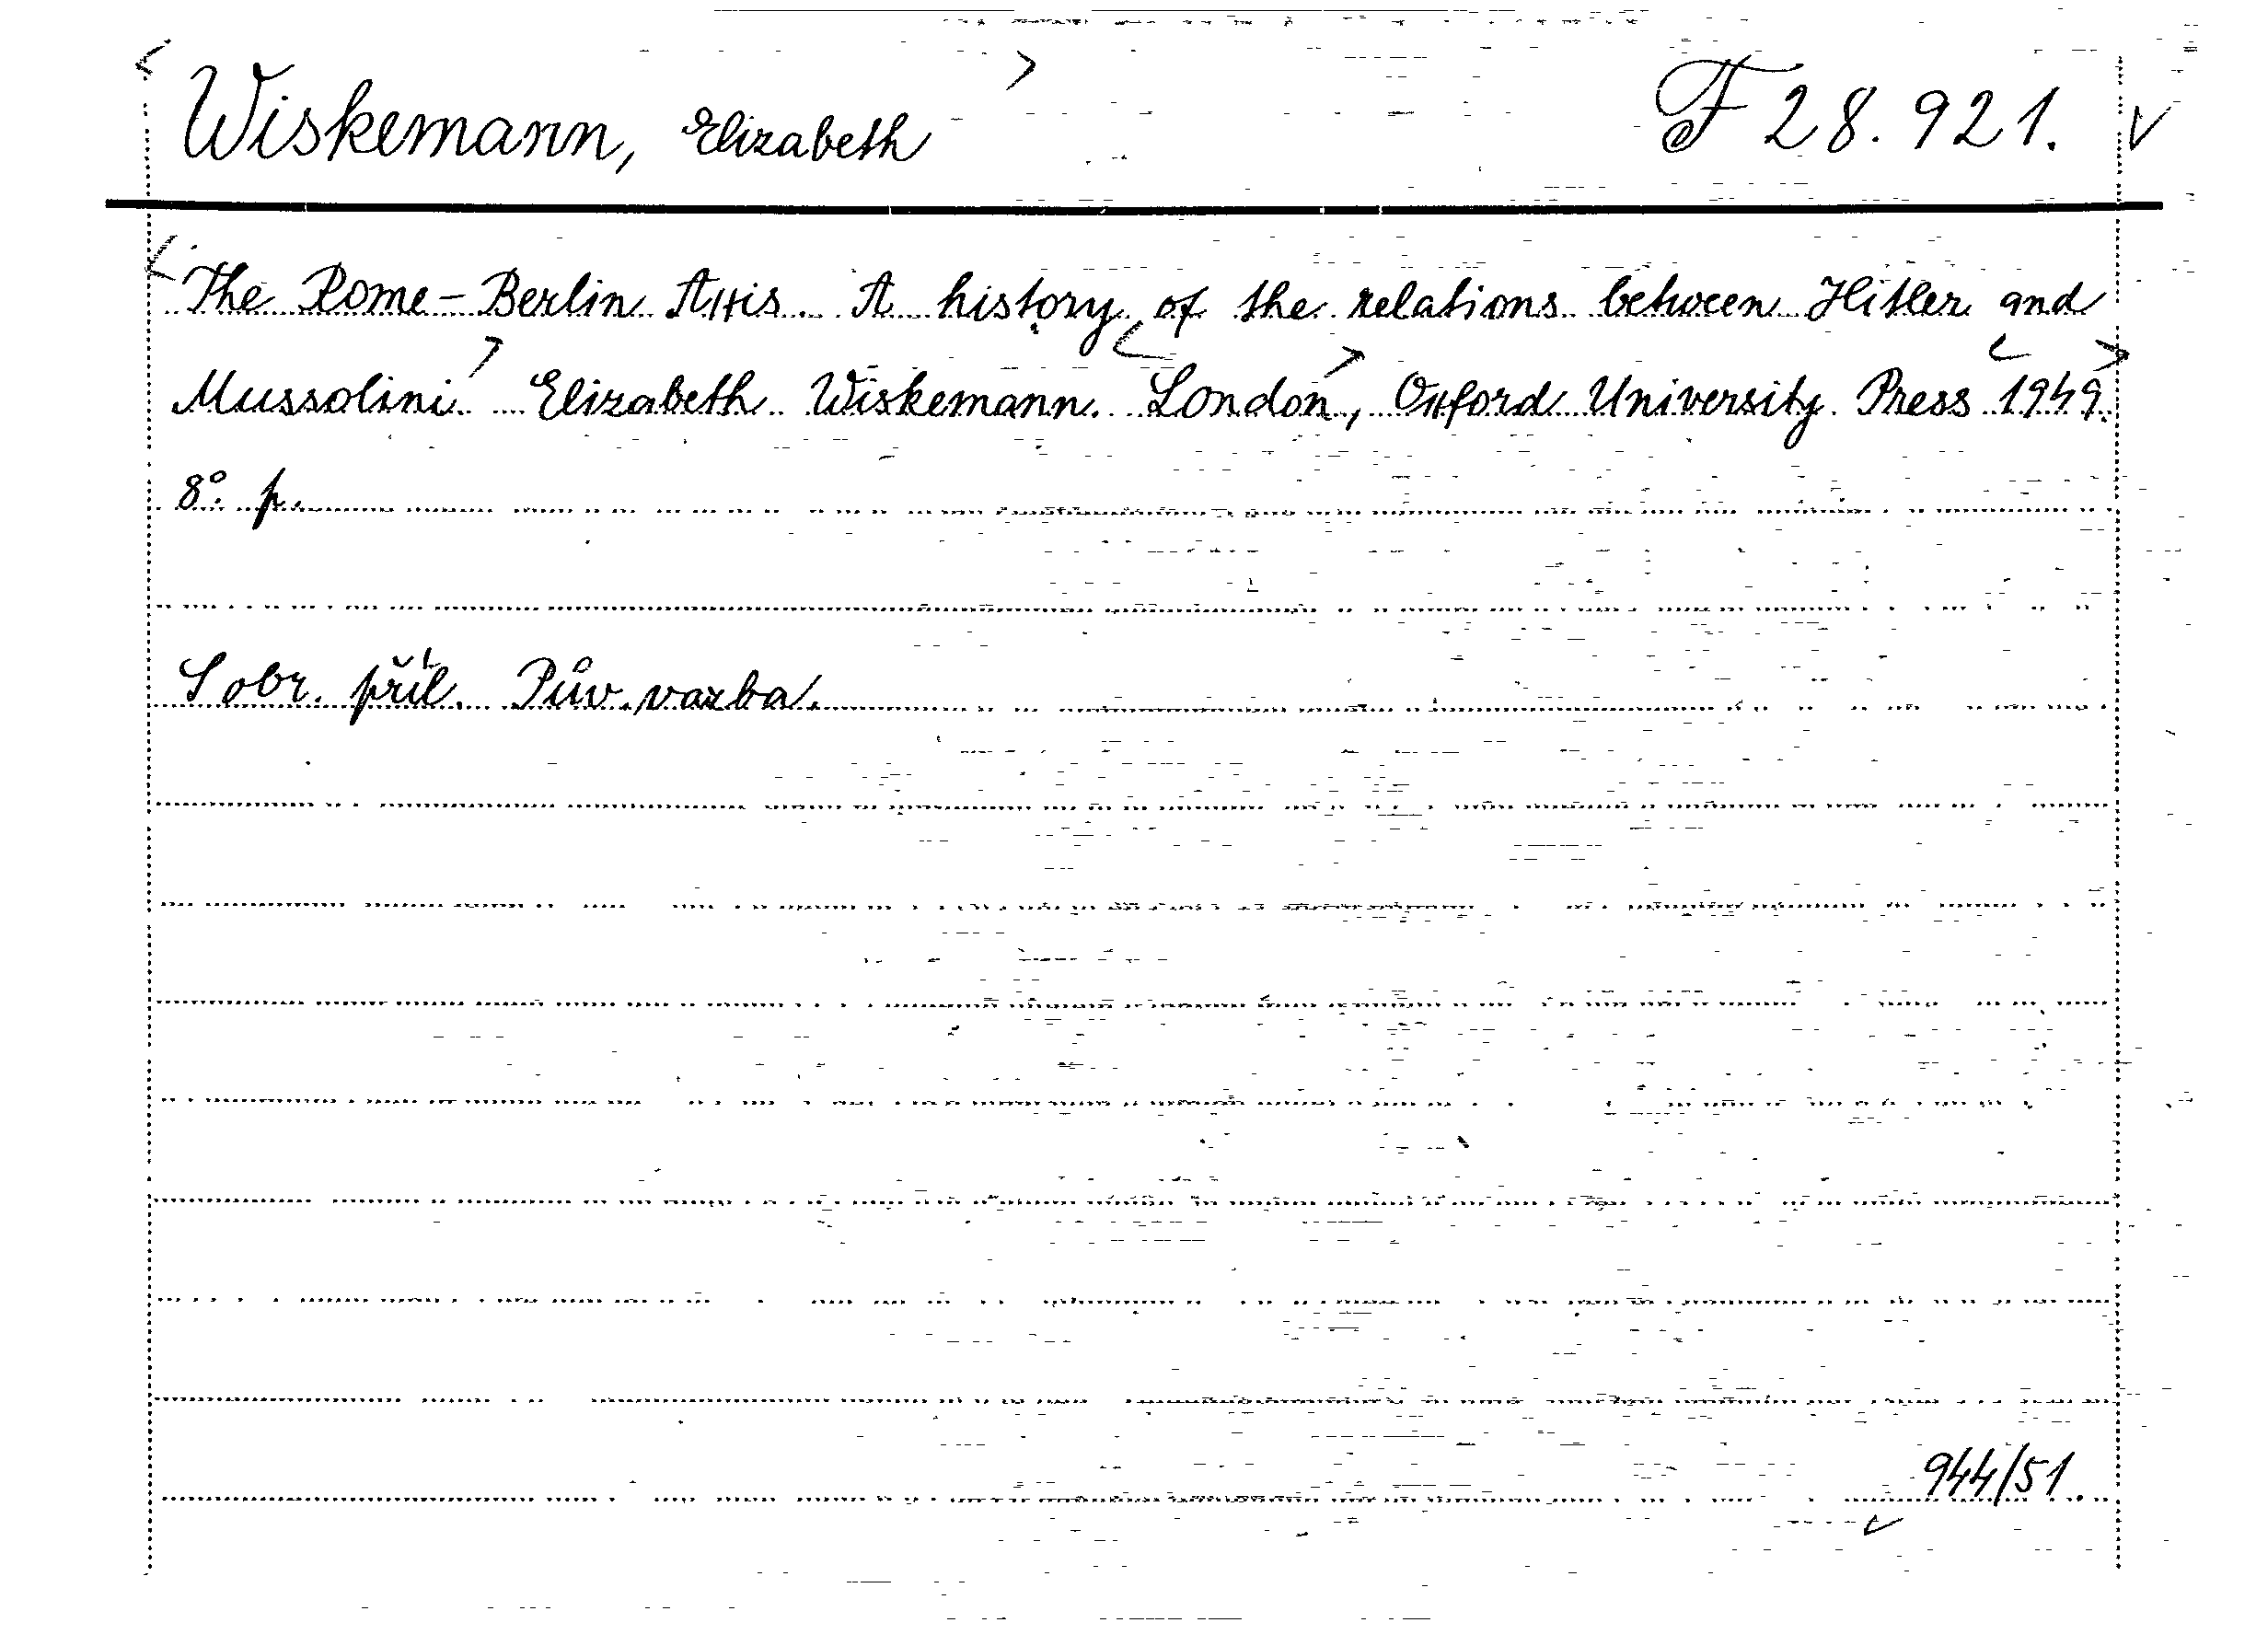 Wiskemann, Elizabeth F 28.921.
The Rome-Berlin Axis. A history of the relations between Hitler and
Mussolini Elizabeth Wiskemann. London, Oxford University Press 1949.
8°. p.
S obr. příl. Pův. vazba.
944/51.